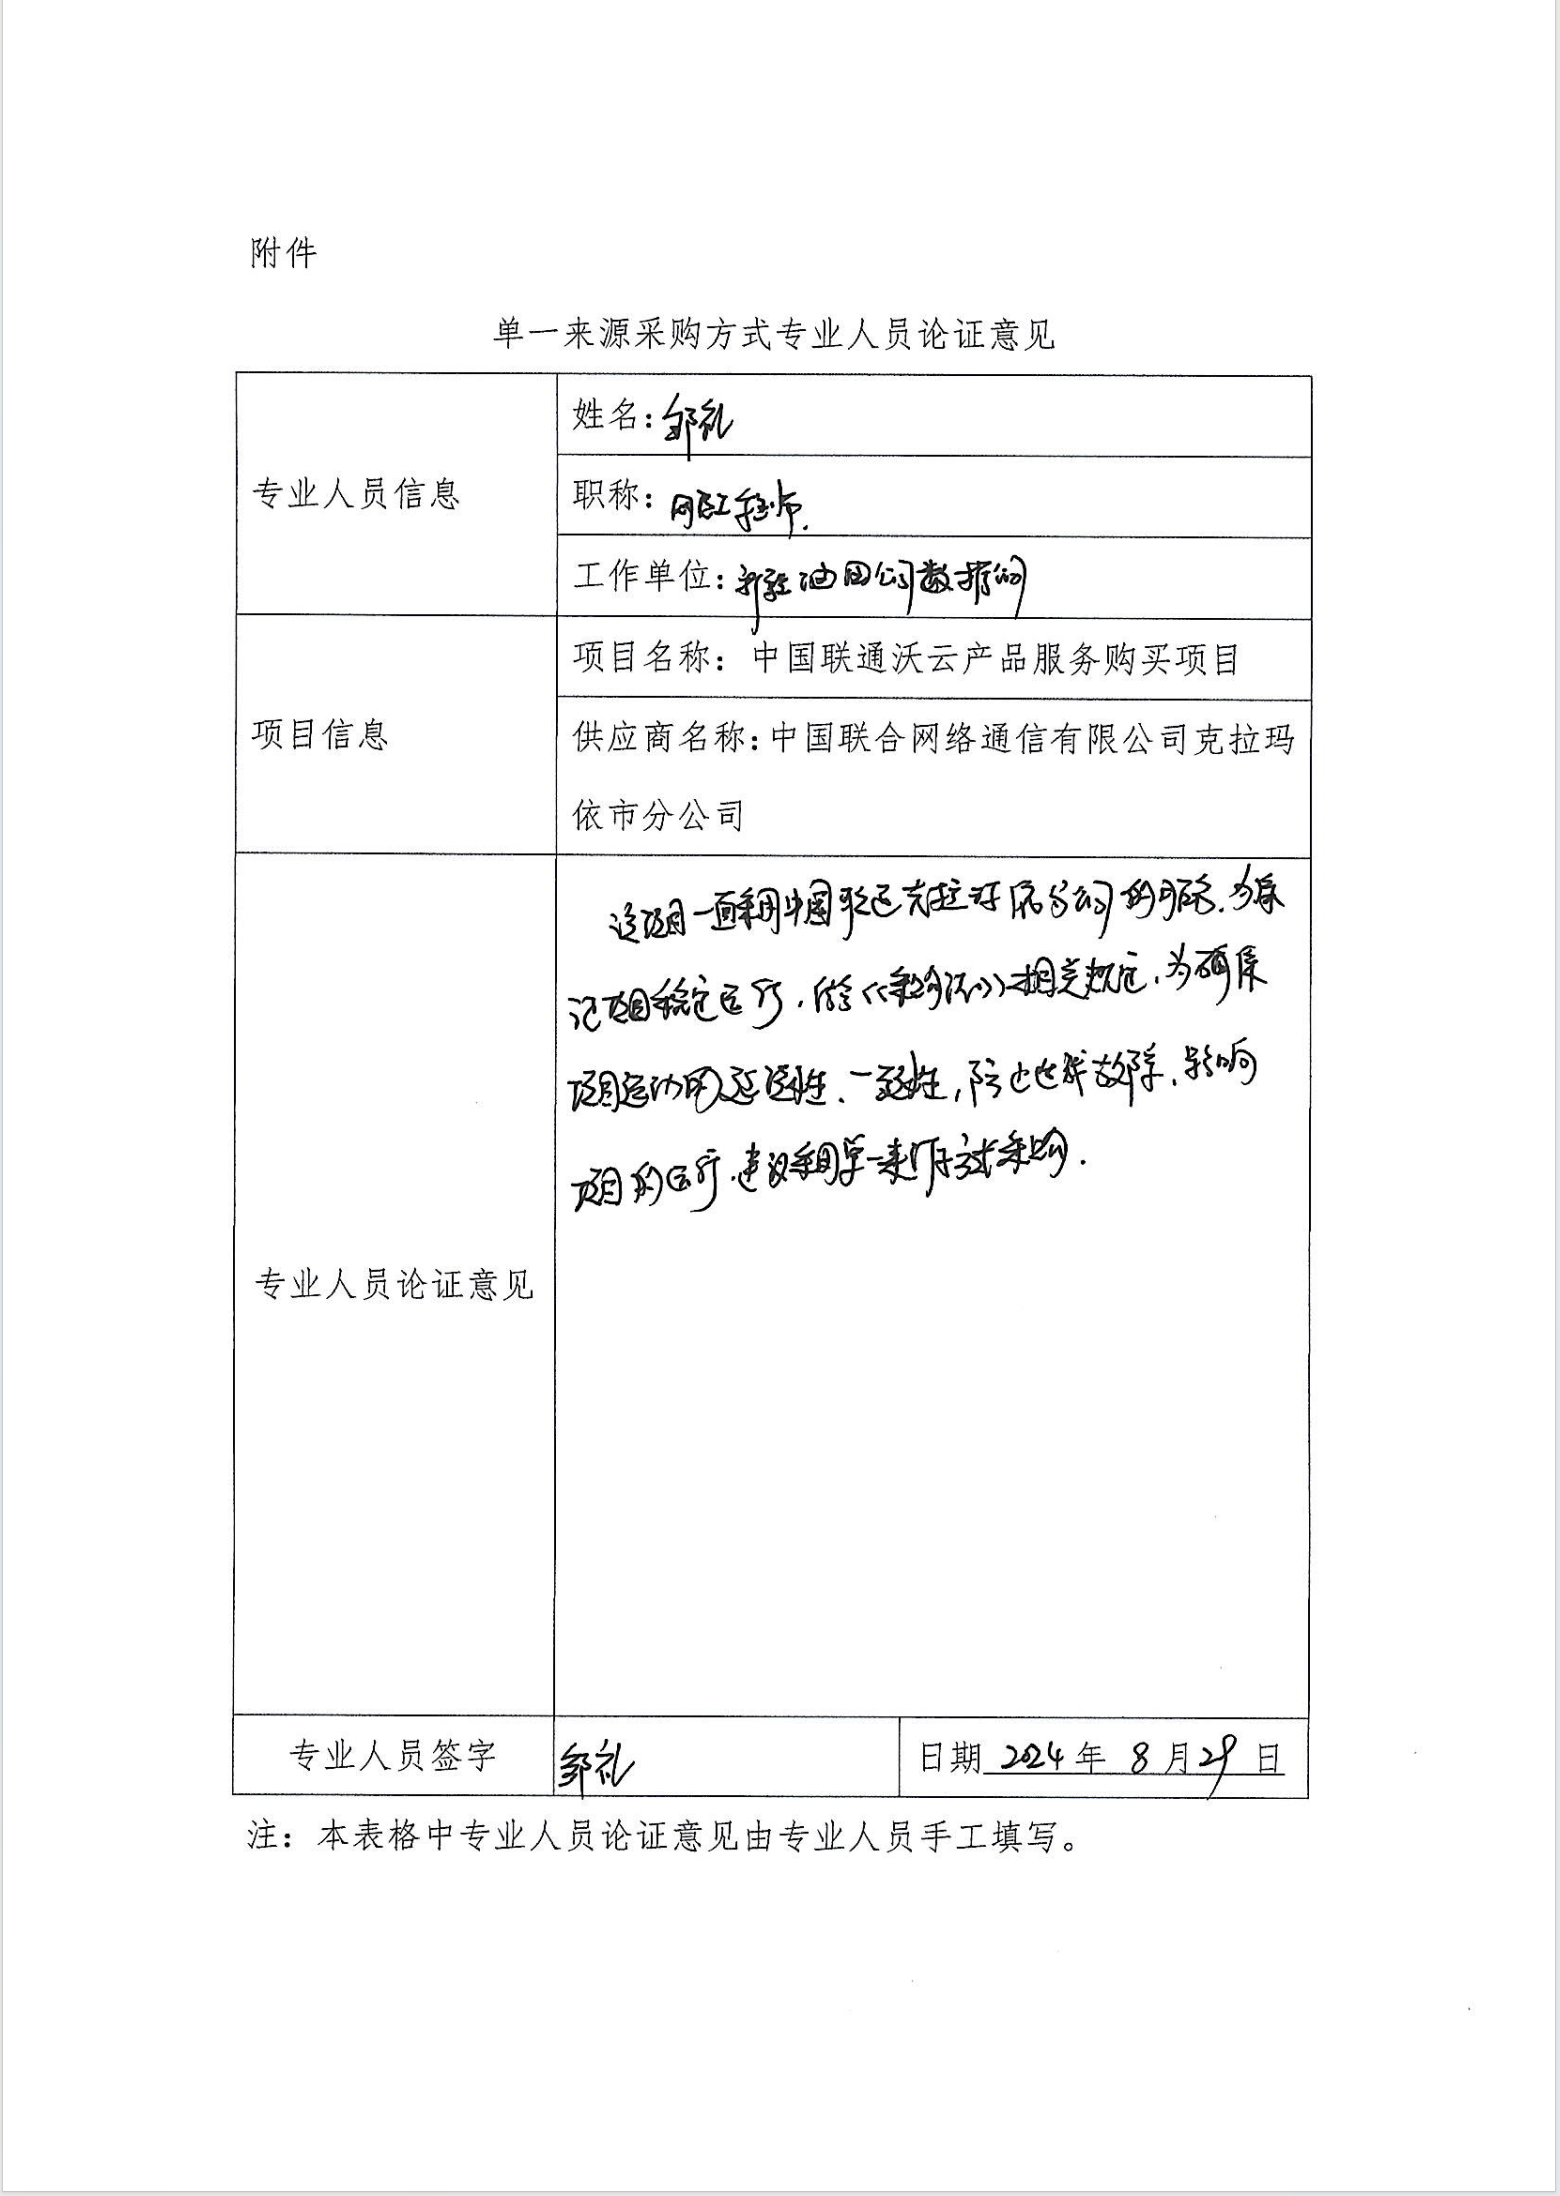 附件
单一来源采购方式专业人员论证意见
专业人员信息
姓名：邹礼
职称：网络工程师.
工作单位：新疆油田公司数据公司
项目信息
项目名称：中国联通沃云产品服务购买项目
供应商名称：中国联合网络通信有限公司克拉玛
依市分公司
专业人员论证意见
该项目一直采用中国联通克拉玛依分公司的服务，为保
证项目稳定运行，符合《采购法》相关规定，为确保
项目运动的延续性、一致性，防止造成故障，影响
项目的运行，建议采用单一来源方式采购.
专业人员签字
邹礼
日期 2024年 8月29日
注：本表格中专业人员论证意见由专业人员手工填写。